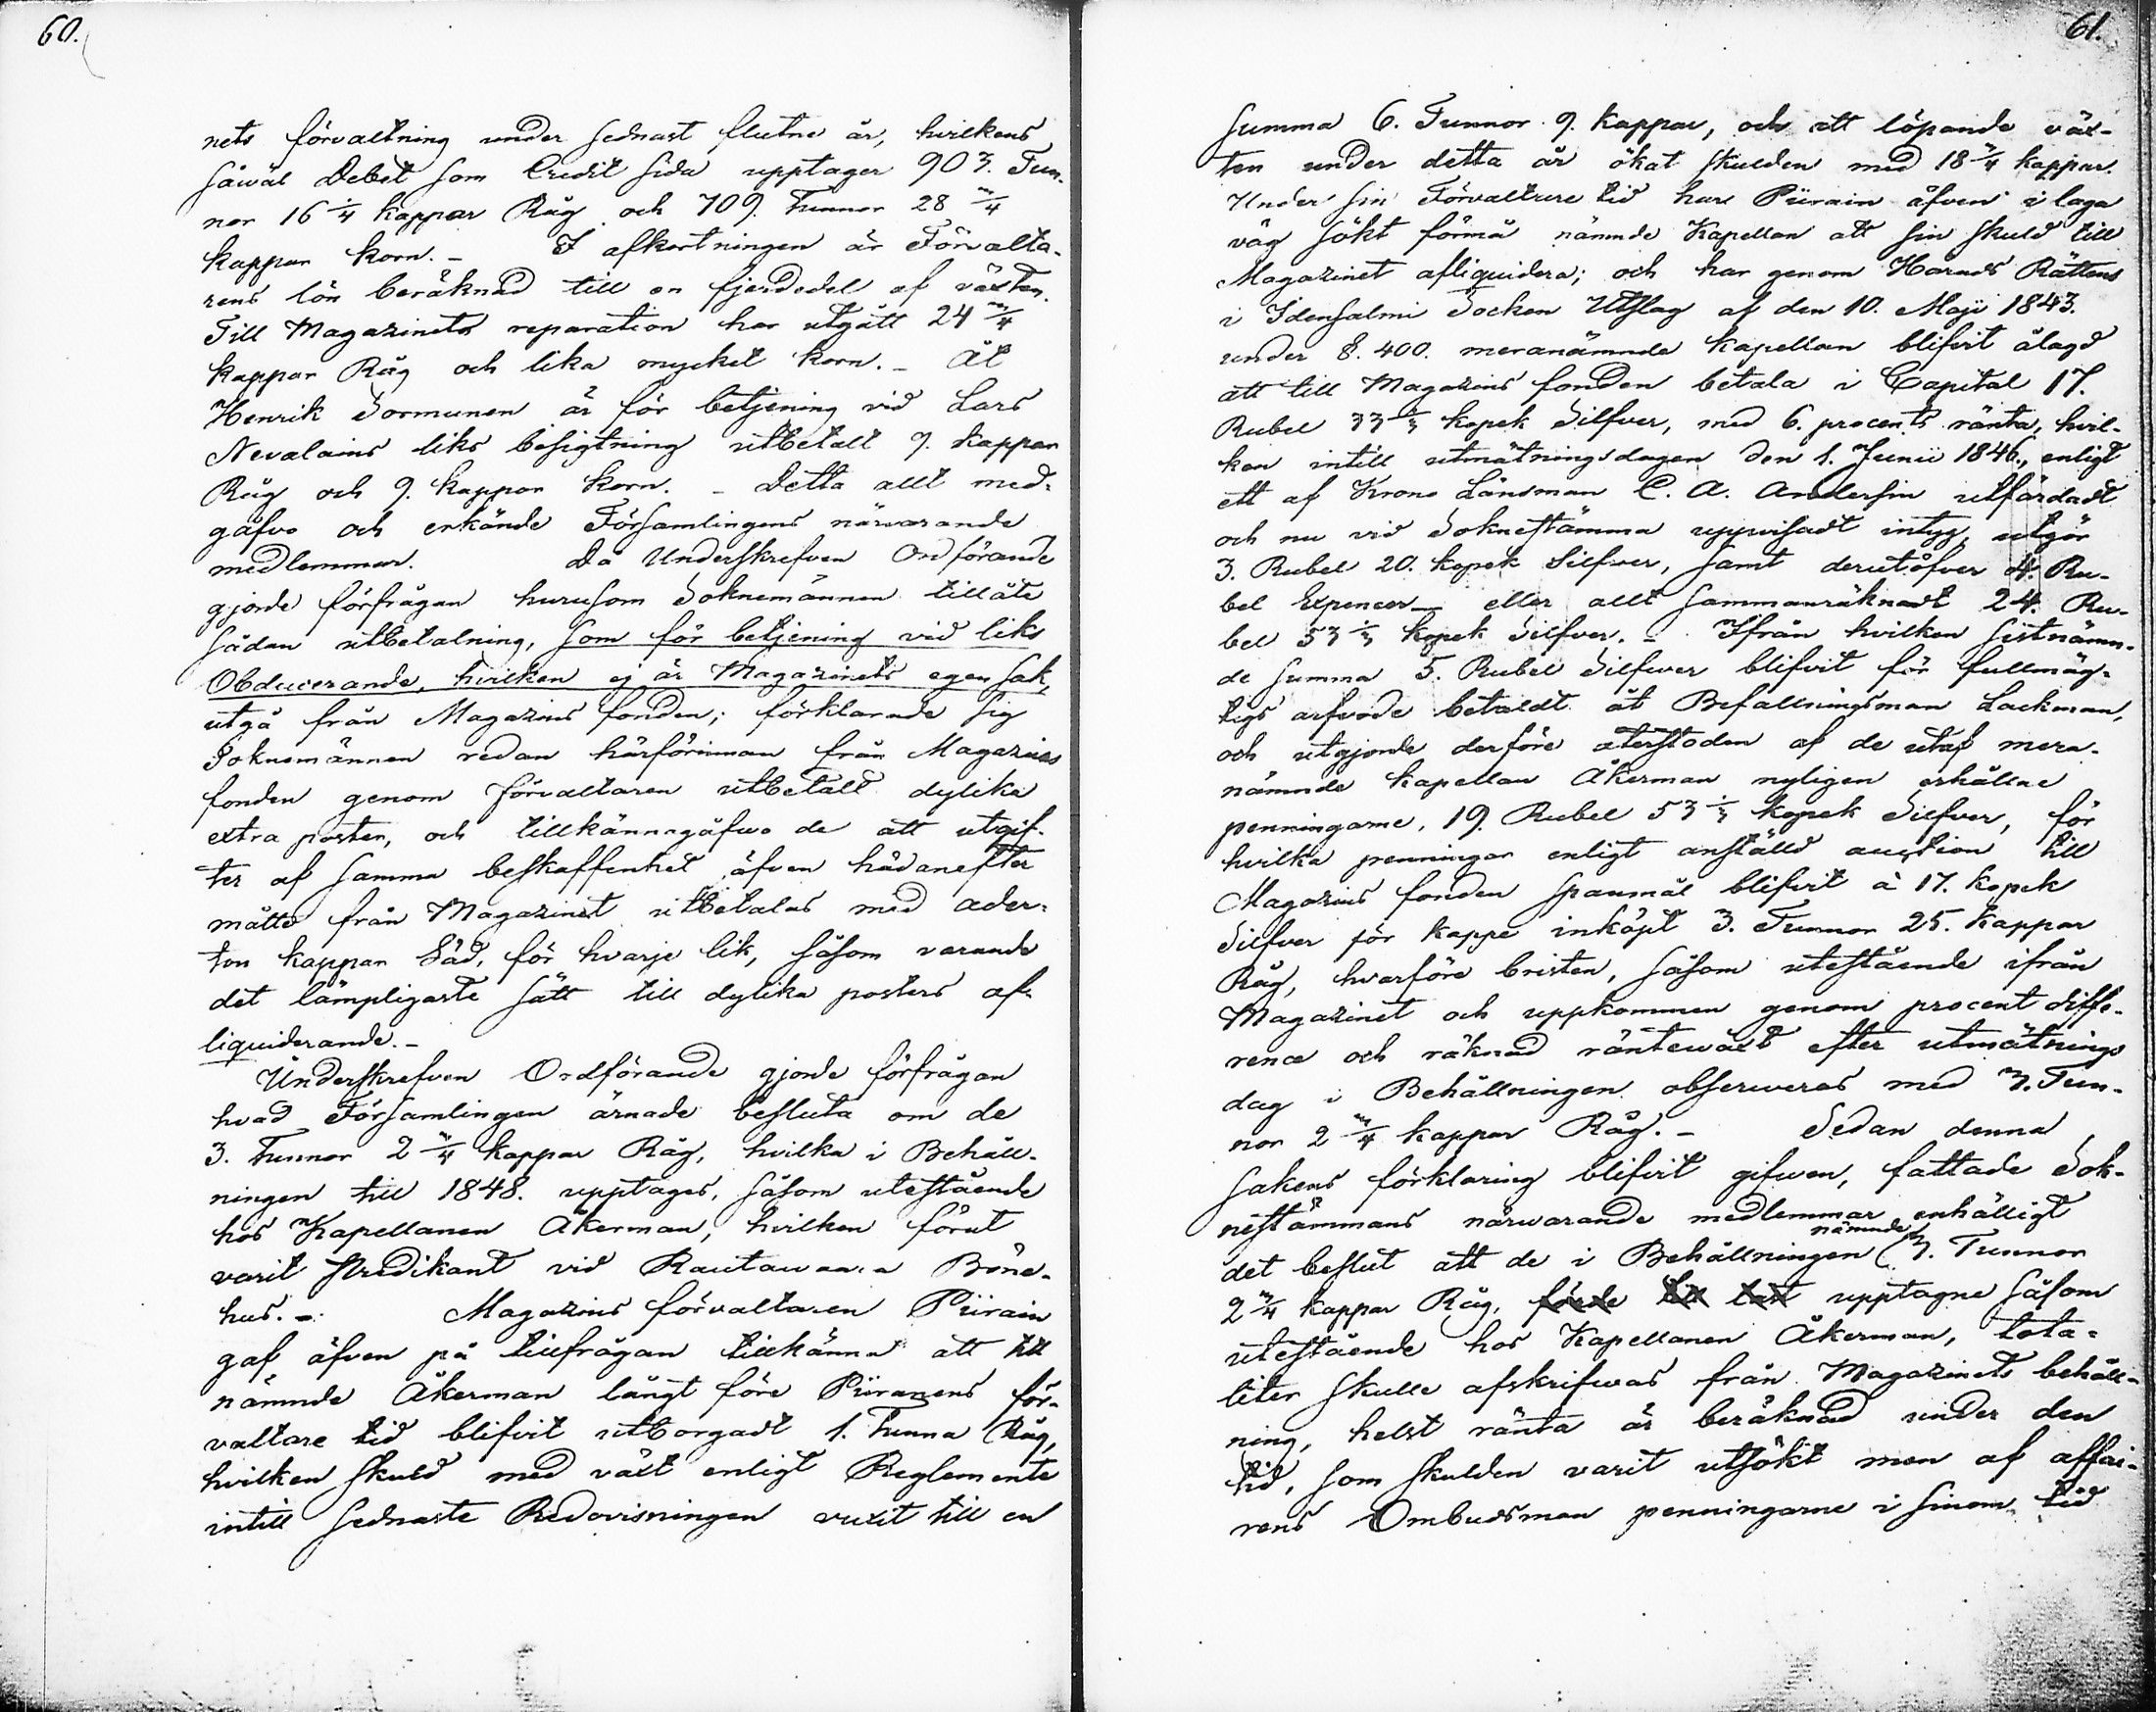 60.
nets förvaltning under sednast flutne år, hvilkens
såwäl Debet som Credit sida upptager 903. Tun-
nor 16 1/4 kappar Råg och 709. Tunnor 28 3/4
kappar korn. - I afkortningen är Förvalta-
rens lön beräknad till en fjerdedel af växten.
Till Magazinets reparation har utgått 24 3/4
kappar Råg och lika mycket korn. - Åt
Henrik Sormunen är för betjening vid Lars
Nevalains liks besigtning utbetalt 9. kappar
Råg och 9. kappar korn. - Detta allt med-
gåfvo och erkände Församlingens närwarande
medlemmar. Då Underskrefven Ordförande
gjorde förfrågan hurusom Soknemännen tillåte
sådan utbetalning, som för betjening vid liks
Obducerande, hvilken ej är Magazinets egen sak,
utgå från Magazins fonden; förklarade sig
Soknemännen redan härförinnan från Magazins
fonden genom förvaltaren utbetalt dylika
extra poster, och tillkännagåfwo de att utgif-
ter af samma beskaffenhet äfven hädanefter
måtte från Magazinet utbetalas med ader-
ton kappar Säd, för hvarje lik, såsom varande
det lämpligaste sätt till dylika posters af-
liquiderande. -
Underskrefven Ordförande gjorde förfrågan
hvad Församlingen ärnade besluta om de
3. Tunnor 2 3/4 kappar Råg, hvilka i Behåll-
ningen till 1848. upptages, såsom utestående
hos Kapellanen Åkerman, hvilken förut
varit Predikant vid Rautawaara Böne-
hus. - Magazins förvaltaren Piirain
gaf äfven på tillfrågan tillkänna att till
nämnde Åkerman långt före Piirainens för-
valtare tid blifvit utborgadt 1. Tunna Råg,
hvilken skuld med växt enligt Reglemente
intill sednaste Redovisningen vuxit till en
61.
summa 6. Tunnor 9. kappar, och att löpande väx-
ten under detta år ökat skulden med 18 3/4 kappar.
Under sin Förvaltare tid har Piirain äfven i laga
väg sökt förmå nämnde Kapellan att sin skuld till
Magazinet afliquidera; och har genom Härads Rättens
i Idensalmi Socken Utslag af den 10. Maji 1843.
under §. 400. meranämnde kapellan blifvit ålagd
att till Magazins fonden betala i Capital 17.
Rubel 33 1/3 kopek Silfver, med 6. procents ränta, hvil-
ken intill utmätningsdagen den 1. Junii 1846., enligt
ett af Krono Länsman C. A. Andersin utfärdadt
och nu vid Soknestämma uppvisadt intyg, utgör
3. Rubel 20. kopek Silfwer, samt derutöfver 4. Ru-
bel Expencer - eller allt sammanräknadt 24. Ru-
bel 53 1/3 kopek Silfver. - Ifrån hvilken sistnämn-
de summa 5. Rubel Silfwer blifvit för fullmäg-
tigs arfvode betaldt åt Befallningsman Lackman,
och utgjorde derföre återstoden af de utaf mera-
nämnde kapellan Åkerman nyligen erhållne
penningarne, 19. Rubel 53 1/3 kopek Silfver, för
hvilka penningar enligt anställd auction till
Magazins fonden spanmål blifvit à 17. kopek
Silfver för kappe inköpt 3. Tunnor 25. kappar
Råg, hvarföre bristen, såsom utestående ifrån
Magazinet och uppkommen genom procent diffe-
rence och räknad räntewäxt efter utmätnings
dag i Behållningen observeras med 3. Tun-
nor 2 3/4 kappar Råg. - Sedan denna
sakens förklaring blifvit gifwen, fattade Sok-
nestämmans närwarande medlemmar enhälligt
det beslut att de i Behållningen nämnde 3. Tunnor
2 3/4 kappar Råg, upptagne såsom
utestående hos Kapellanen Åkerman, tota-
liter skulle afskrifwas från Magazinets behåll-
ning, helst ränta är beräknad under den
tid, som skulden varit utsökt men af affai-
rens Ombudsman penningarne i sinom tid